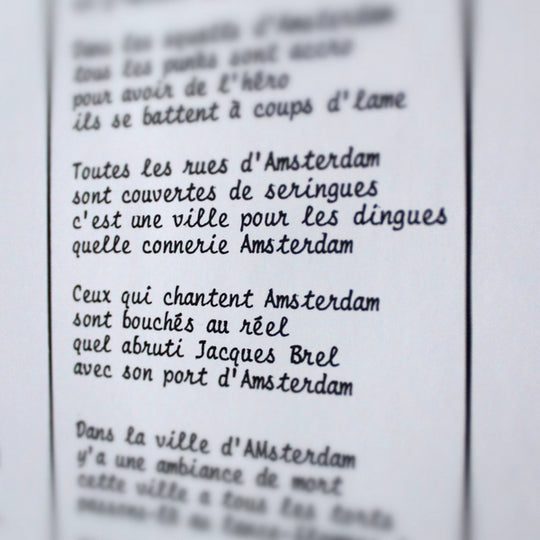 Dans les squatts d'Amsterdam
tous les punks sont accro
pour avoir de l'héro
ils se battent à coups d'lame
Toutes les rues d'Amsterdam
sont couvertes de seringues
c'est une ville pour les dingues
quelle connerie Amsterdam
Ceux qui chantent Amsterdam
sont bouchés au réel
quel abruti Jacques Brel
avec son port d'Amsterdam
Dans la ville d'AMsterdam
y'a une ambiance de mort
cette ville a tous les torts